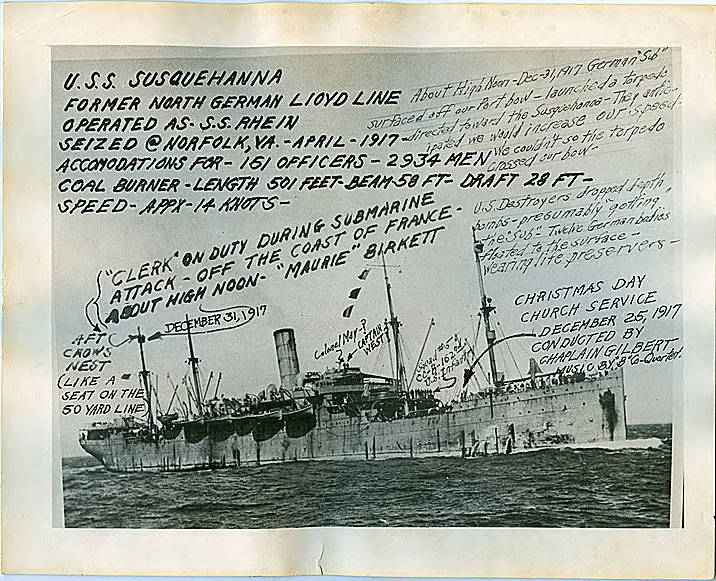 U.S.S. SUSQUEHANNA
FORMER NORTH GERMAN LIOYD LINE
OPERATED AS- S.S. RHEIN
SEIZED @ NORFOLK, VA. - APRIL - 1917 -
ACCOMODATIONS FOR - 161 OFFICERS - 2934 MEN
COAL BURNER - LENGTH 501 FEET- BEAM-58 FT- DRAFT 28 FT-
SPEED- APPX-14 KNOTS-
About High Noon-Dec-31, 1917 German "Sub"
surfaced off our Port bow - launched a torpedo,
directed toward the Susquehanna - They antic-
ipated we would increase our speed-
We couldn't so the torpedo
crossed our bow-
U.S. Destroyers dropped depth
bombs - presumably "getting"
the "Sub" Twelve German bodies
floated to the surface -
wearing life preservers -
"CLERK" ON DUTY DURING SUBMARINE
ATTACK - OFF THE COAST OF FRANCE -
ABOUT HIGH NOON- "MAURIE" BIRKETT
DECEMBER 31, 1917
AFT
CROWS
NEST
(LIKE A
SEAT ON THE
50 YARD LINE)
Colonel May-P
CAPTAIN
WEST?
Squad #5 of
Co. B. 162nd
U.S. Infantry
CHRISTMAS DAY
CHURCH SERVICE
DECEMBER 25, 1917
CONDUCTED BY
CHAPLAIN GILBERT
MUSIC BY "B" Co-Quartet.